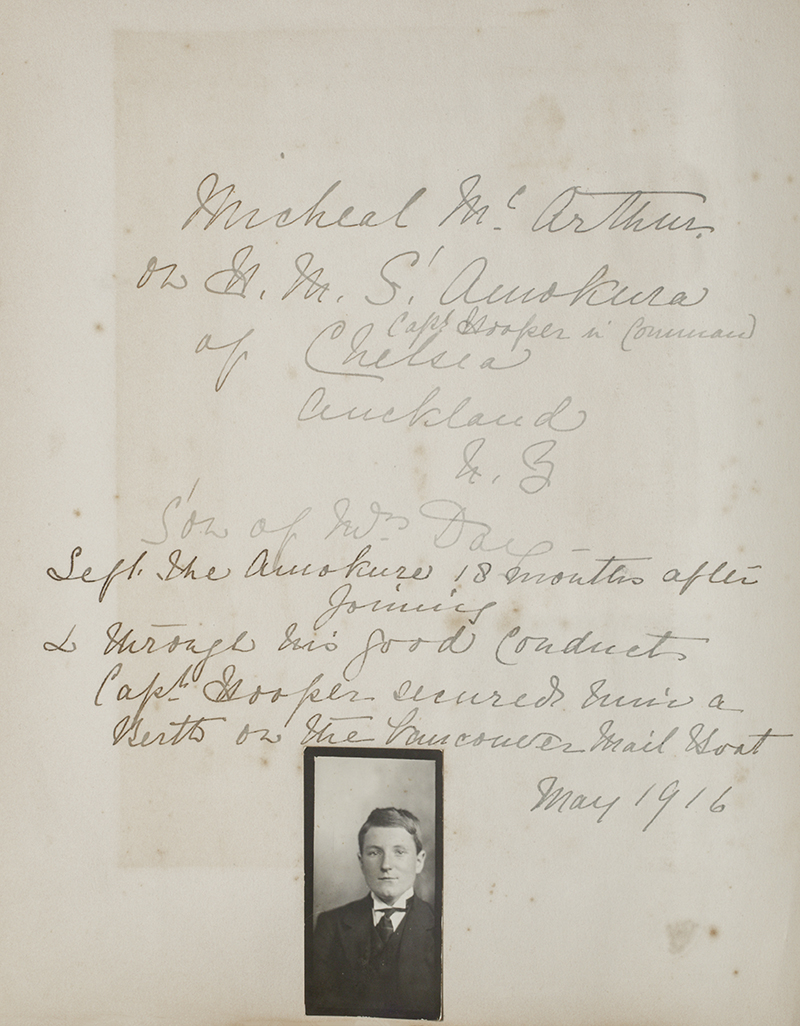 Micheal Mc Arthur.
on H. M. S. Amokura
Capt Hooper in Command
of Chelsea
Auckland
N. Z
Son of Mrs
Left the Amokura 18 months after
Joining
& through his good Conduct
Capt Hooper secured him a
Berth on the Vancouver Mail Boat
May 1916